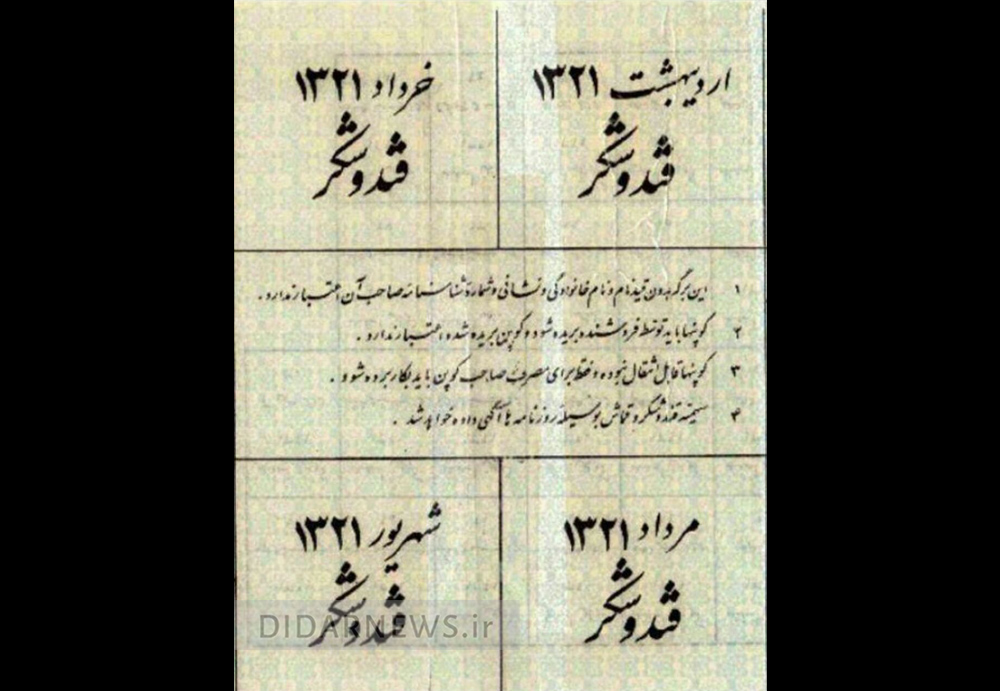 اردیبهشت ۱۳۲۱
قند و شکر
خرداد ۱۳۲۱
قند و شکر
۱ این برگ بدون قید نام و نام خانوادگی و نشانی و شمارهٔ شناسنامه صاحب آن اعتبار ندارد.
۲ کوپنها باید توسط فروشنده بریده شود و کوپن بریده شده اعتبار ندارد.
۳ کوپنها قابل انتقال نبوده و فقط برای مصرف صاحب کوپن باید بکار برده شود.
۴ سهمیه قند و شکر و قماش بوسیله روزنامه ها آگهی داده خواهد شد.
مرداد ۱۳۲۱
قند و شکر
شهریور ۱۳۲۱
قند و شکر
DIDARNEWS.ir